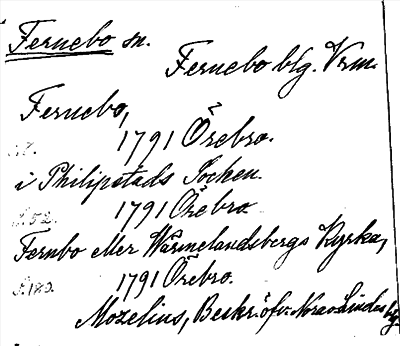 Fernebo sn.
Fernebo blg. Vrm.
Fernebo,
1791 Örebro.
i Philipstads Socken.
1791 Örebro
s. 52.
Fernbo eller Wärmelandsbergs Kyrka,
1791 Örebro.
s. 180.
Mozelius, Beskr. öfv. Nora o Lindes bg.